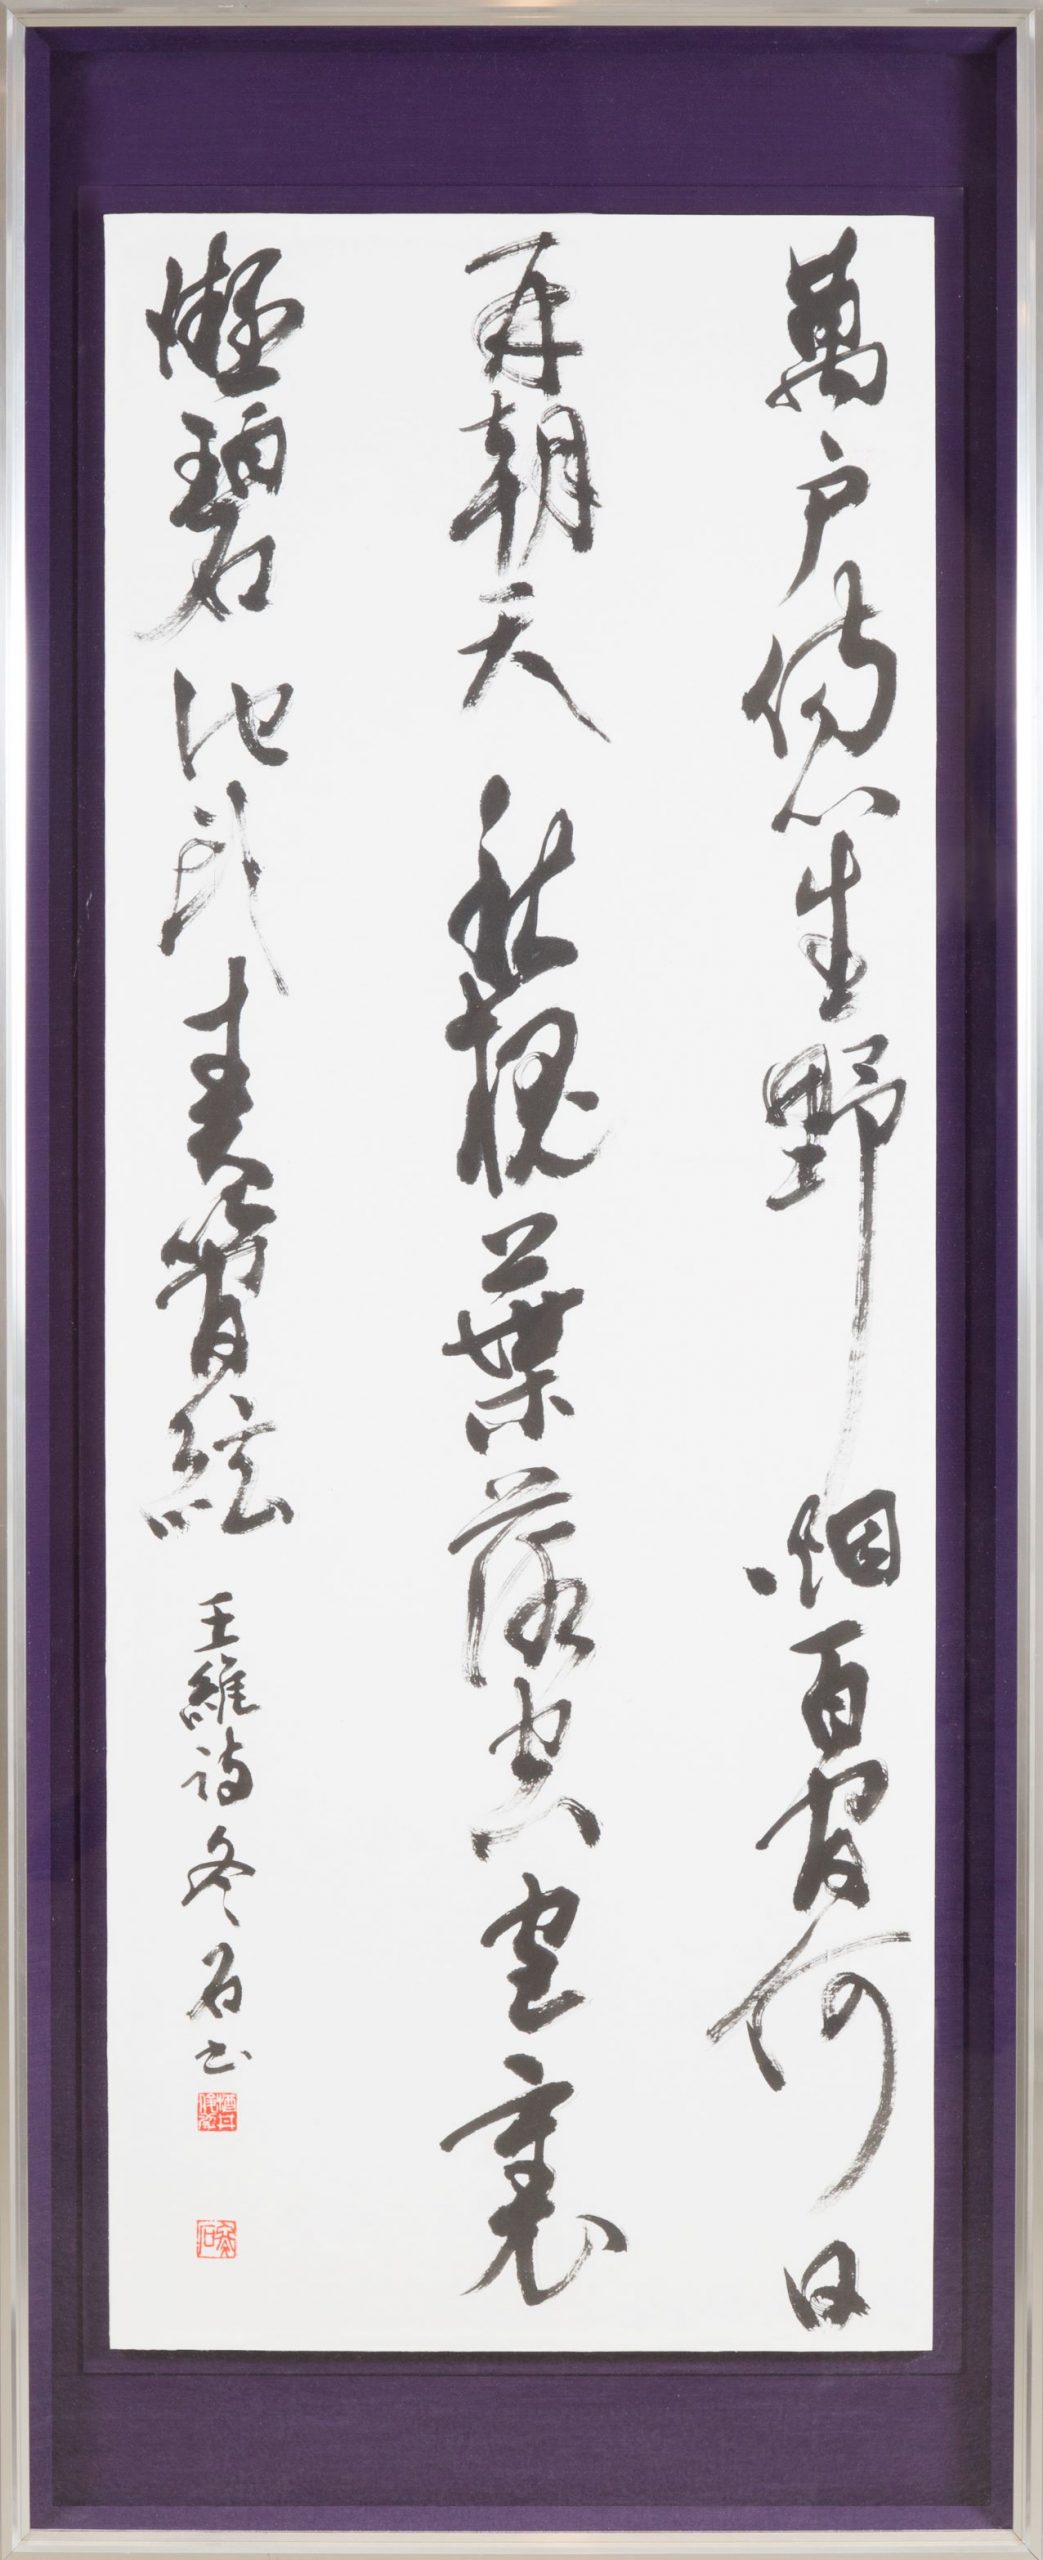 萬戶傷心生野烟百官何日
再朝天秋槐葉落空宮裏
凝碧池頭奏管絃 王維詩 冬石書